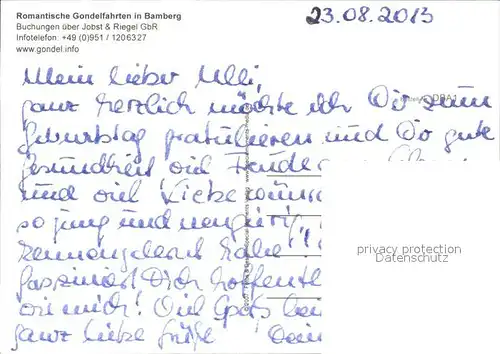 Romantische Gondelfahrten in Bamberg
Buchungen über Jobst & Riegel GbR
Infotelefon: +49 (0)951 / 1206327
www.gondel.info
23.08.2013
Mein lieber Ulli,
ganz herzlich möchte ich Dir zum
Geburtstag gratulieren und Dir gute
Gesundheit viel Freude
und viel Liebe wünsc
so jung und neugieri
kennengelernt habe
fasziniert Dich hoffentl
wie mich! Viel Spaß bei
ganz liebe Grüße Dein
privacy protection
Datenschutz